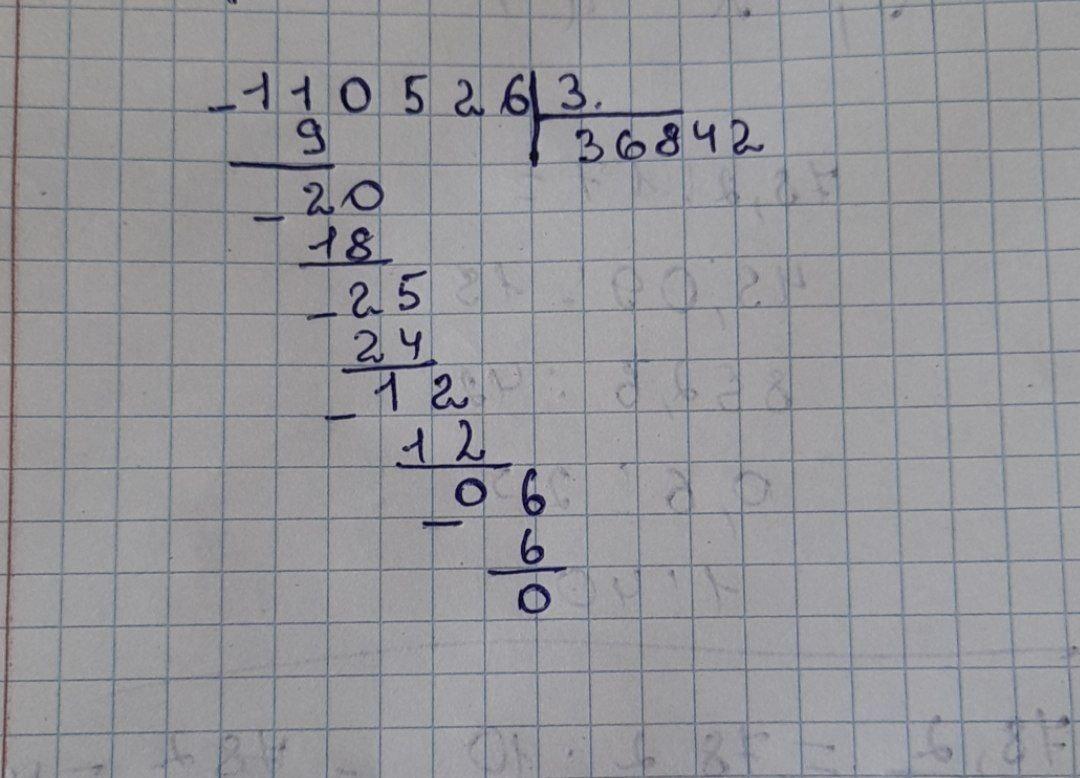 -110526|3.
9 36842
-20
18
-25
24
-12
12
-06
6
0